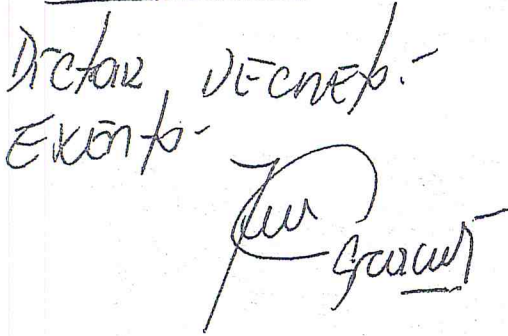 Dictar Decreto.-
Exento-